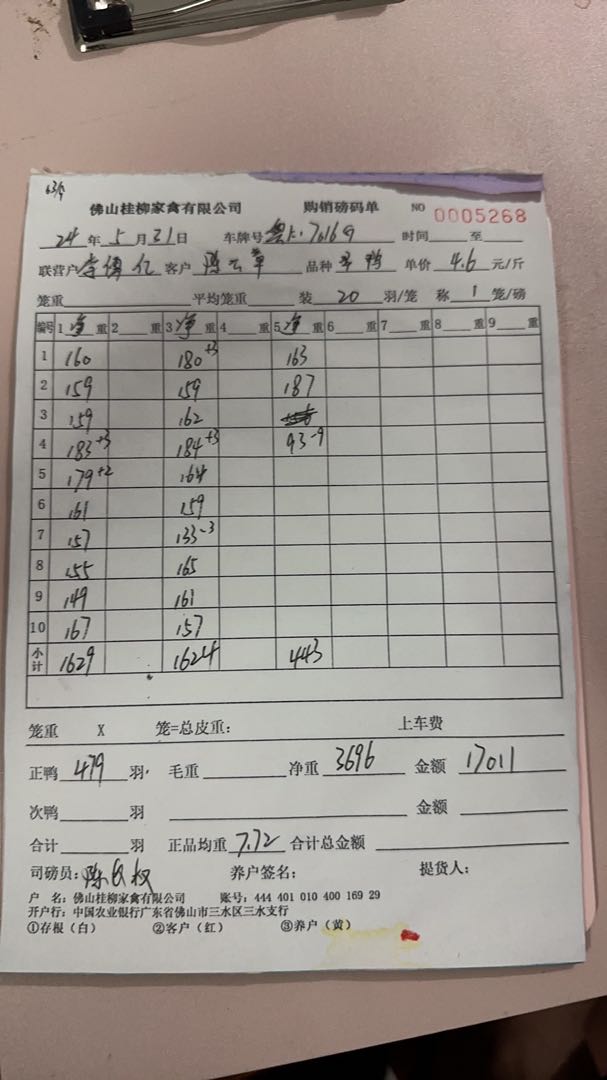 佛山桂柳家禽有限公司 购销磅码单 NO 0005268
24 年 5 月 31 日 车牌号 时间 至
联营户 客户 品种 单价 4.6 元/斤
笼重 平均笼重 装 20 羽/笼 称 1 笼/磅
编号 1 净 重 2 重 3 净 重 4 重 5 净 重 6 重 7 重 8 重 9 重
1 160 180+3 163
2 159 159 187
3 159 162
4 183+3 184+3 93-9
5 179+2 164
6 161 159
7 157 133-3
8 155 165
9 149 161
10 167 157
小计 1629 1624 443
笼重 X 笼=总皮重: 上车费
正鸭 479 羽 毛重 净重 3696 金额 17011
次鸭 羽 金额
合计 羽 正品均重 7.72 合计总金额
司磅员: 养户签名: 提货人:
户 名: 佛山桂柳家禽有限公司 账号: 444 401 010 400 169 29
开户行: 中国农业银行广东省佛山市三水区三水支行
①存根(白) ②客户(红) ③养户(黄)